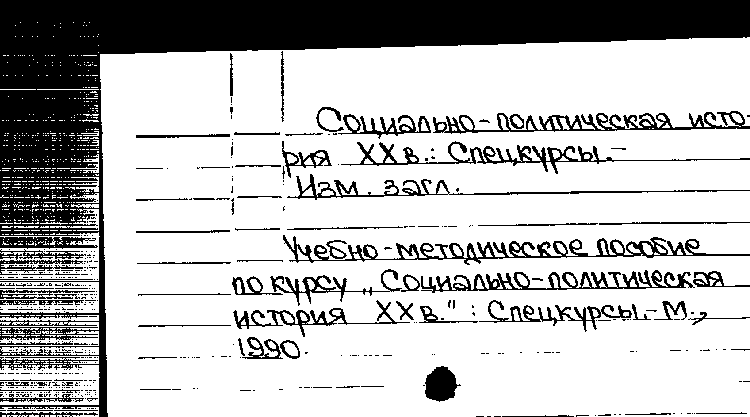 Социально-политическая исто-
рия XX в.: Спецкурсы.-
Изм. загл.
Учебно-методическое пособие
по курсу „Социально-политическая
история XX в." : Спецкурсы.-М.,
1990.